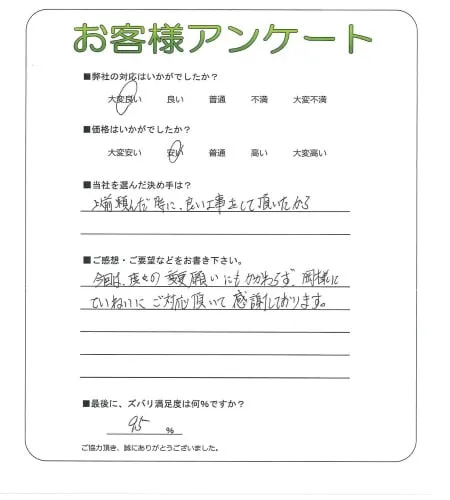 お客様アンケート
■弊社の対応はいかがでしたか？
大変良い 良い 普通 不満 大変不満
■価格はいかがでしたか？
大変安い 安い 普通 高い 大変高い
■当社を選んだ決め手は？
以前頼んだ時に、良い仕事をして頂いたから
■ご感想・ご要望などをお書き下さい。
今回は、度々の変更願いにもかかわらず、同様に
ていねいにご対応頂いて感謝しております。
■最後に、ズバリ満足度は何%ですか？
95 %
ご協力頂き、誠にありがとうございました。